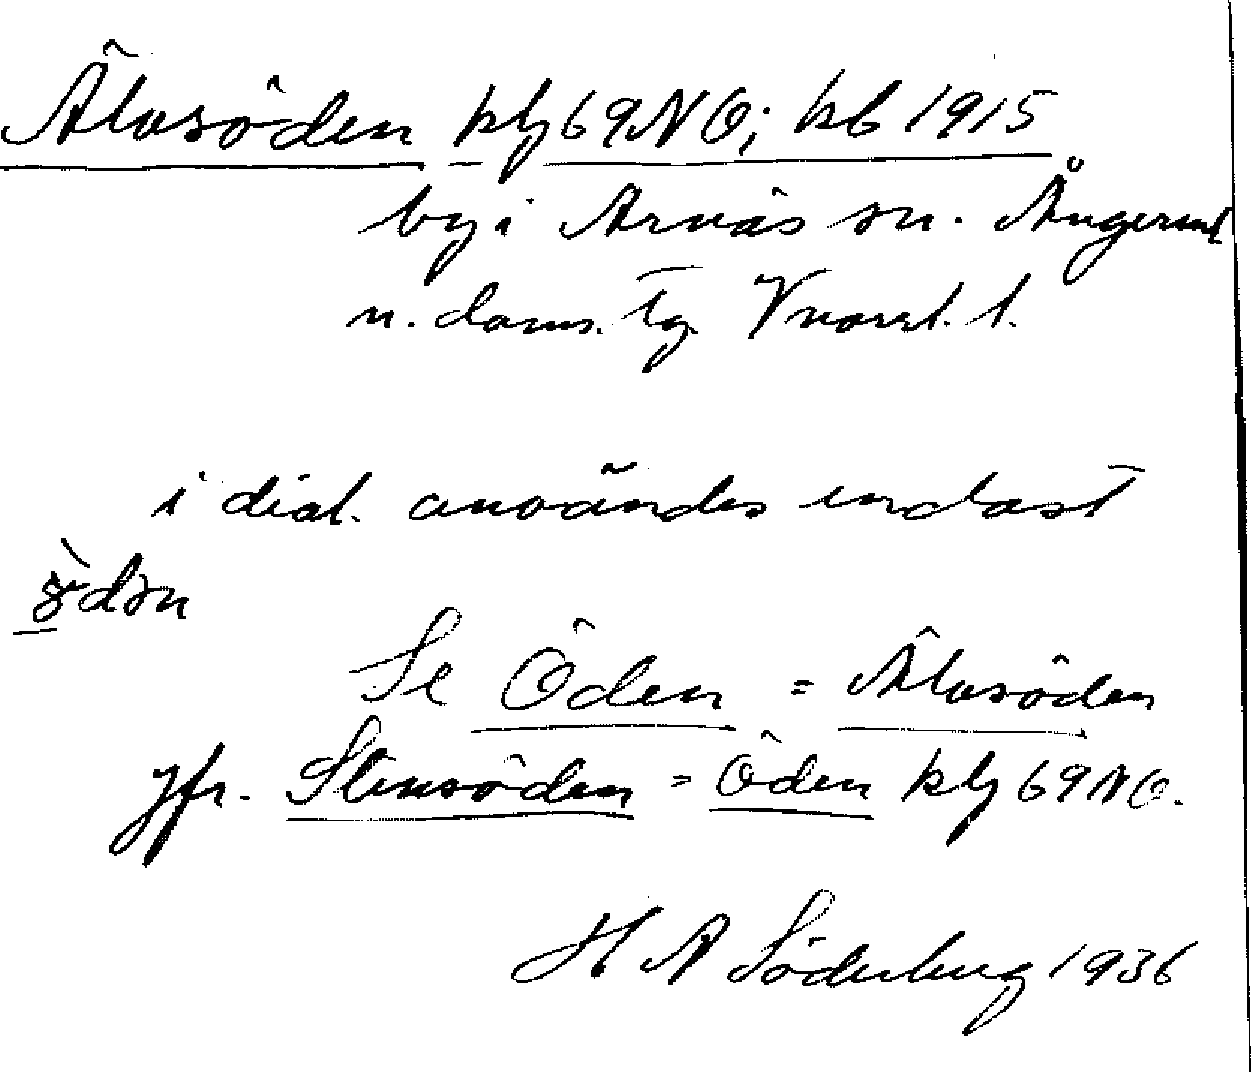 Älvsöden kbl 69 NO; kb 1915
by i Arnäs sn. Ångerml
n. doms. tg Vnorrl. l.
i dial. användes endast
Se Öden = Älvsöden
jfr. Stensöden = Öden kbl 69 NO.
H A Söderberg 1936